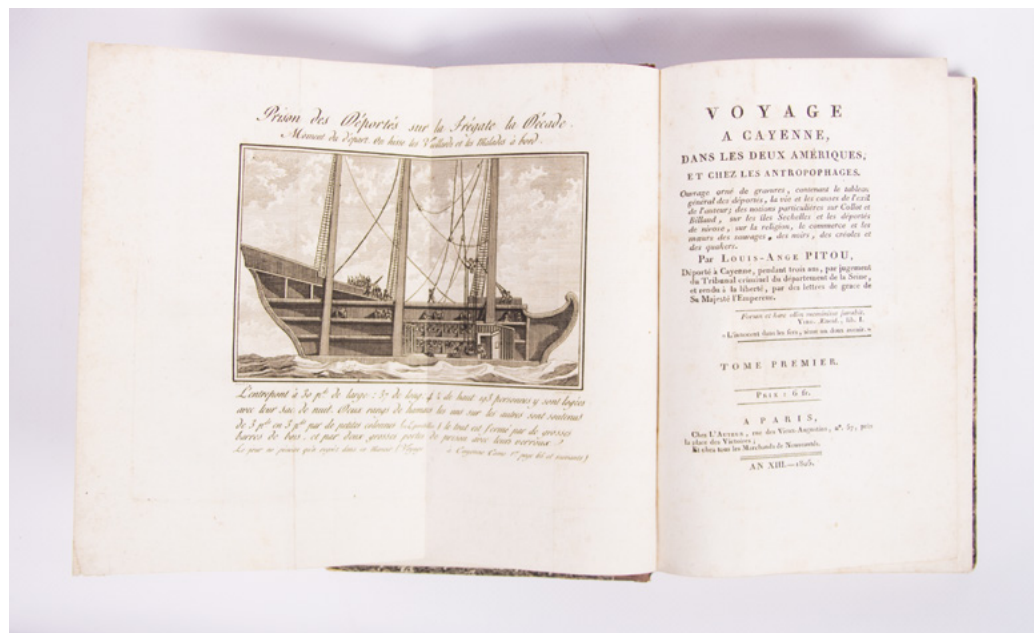 Prison des Déportés sur la Frégate la Décade.
Moment du départ. On hisse les Vieillards et les Malades à bord.
L'entrepont à 30 pds de large : 37 de long 4 ½ de haut 193 personnes y sont logées
avec leur sac de nuit. Deux rangs de hamacs les uns sur les autres sont soutenus
de 3 pds en 3 pds par de petites colonnes le tout est fermé par de grosses
barres de bois, et par deux grosses portes de prison avec leurs verroux.
Le jour ne pénètre qu'à regret dans ce (Voyage à Cayenne Tome 1er page et suivantes)
VOYAGE
A CAYENNE,
DANS LES DEUX AMÉRIQUES,
ET CHEZ LES ANTROPOPHAGES.
Ouvrage orné de gravures, contenant le tableau
général des déportés, la vie et les causes de l'exil
de l'auteur; des notions particulières sur Collot et
Billaud, sur les îles Sechelles et les déportés
de nivose, sur la religion, le commerce et les
mœurs des sauvages, des noirs, des créoles et
des quakers.
Par LOUIS-ANGE PITOU,
Déporté à Cayenne, pendant trois ans, par jugement
du Tribunal criminel du département de la Seine,
et rendu à la liberté, par des lettres de grace de
Sa Majesté l'Empereur.
Forsan et hæc olim meminisse juvabit.
VIRG. Æneid., lib. I.
« L'innocent dans les fers, sème un doux avenir. »
TOME PREMIER.
PRIX : 6 fr.
A PARIS,
Chez L'AUTEUR, rue des Vieux-Augustins, n°. 57, près
la place des Victoires;
Et chez tous les Marchands de Nouveautés.
AN XIII.—1805.